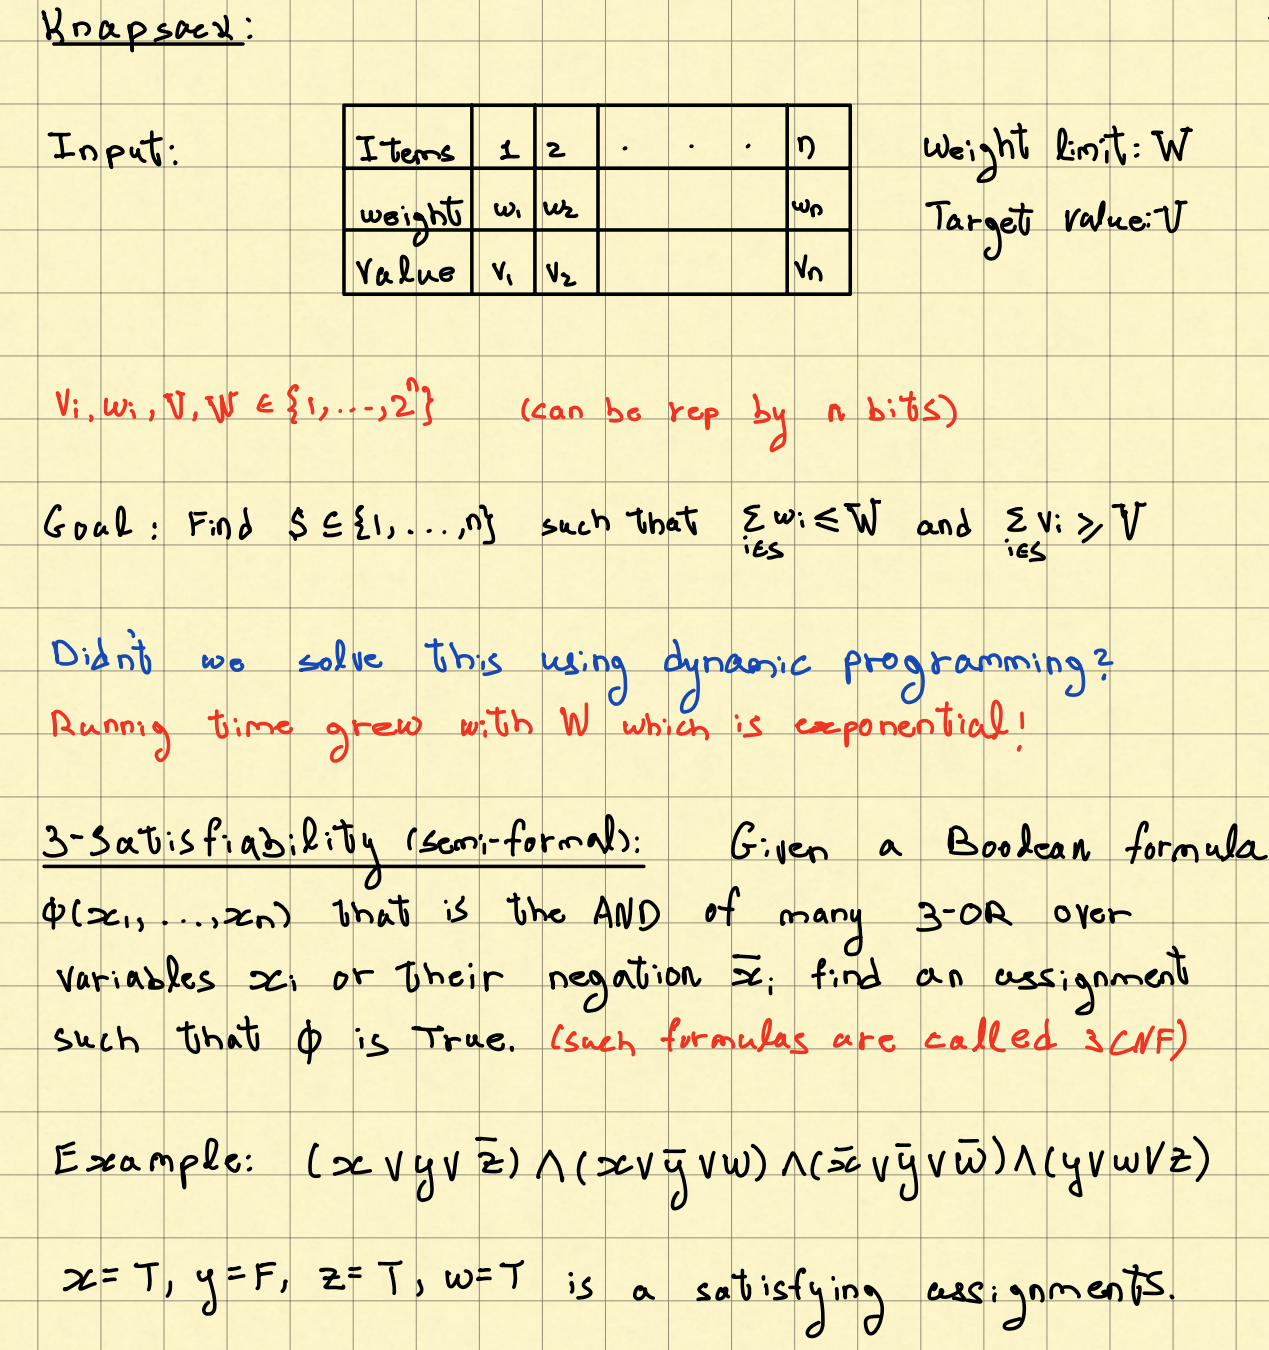 Knapsack:
Input:
Items 1 2 . . . n
weight w₁ w₂ wₙ
Value v₁ v₂ vₙ
Weight limit: W
Target value: V
Vi, wi, V, W ∈ {1,...,2ⁿ} (can be rep by n bits)
Goal: Find S ⊆ {1,...,n} such that Σ_{i∈S} wi ≤ W and Σ_{i∈S} vi ≥ V
Didn't we solve this using dynamic programming?
Runnig time grew with W which is exponential!
3-Satisfiability (semi-formal): Given a Boolean formula
Φ(x₁, ..., xₙ) that is the AND of many 3-OR over
variables xᵢ or their negation x̅ᵢ find an assignment
such that Φ is True. (such formulas are called 3CNF)
Example: (x ∨ y ∨ z̅) ∧ (x ∨ y̅ ∨ w) ∧ (x̅ ∨ y̅ ∨ w̅) ∧ (y ∨ w ∨ z)
x = T, y = F, z = T, w = T is a satisfying assignments.